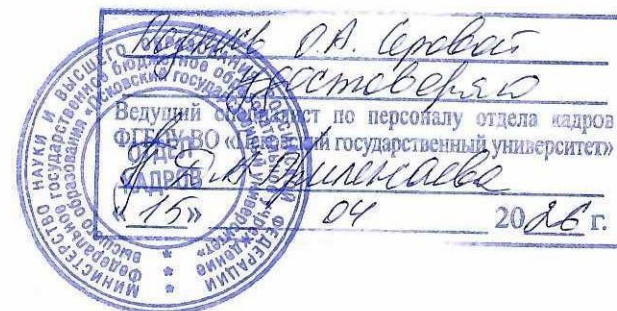 Подпись О.А. Серовой
удостоверяю
Ведущий специалист по персоналу отдела кадров
ФГБОУ ВО «Псковский государственный университет»
«15» 04 2026 г.
МИНИСТЕРСТВО НАУКИ И ВЫСШЕГО ОБРАЗОВАНИЯ РОССИЙСКОЙ ФЕДЕРАЦИИ
Федеральное государственное бюджетное образовательное учреждение
высшего образования «Псковский государственный университет»
ОТДЕЛ
КАДРОВ